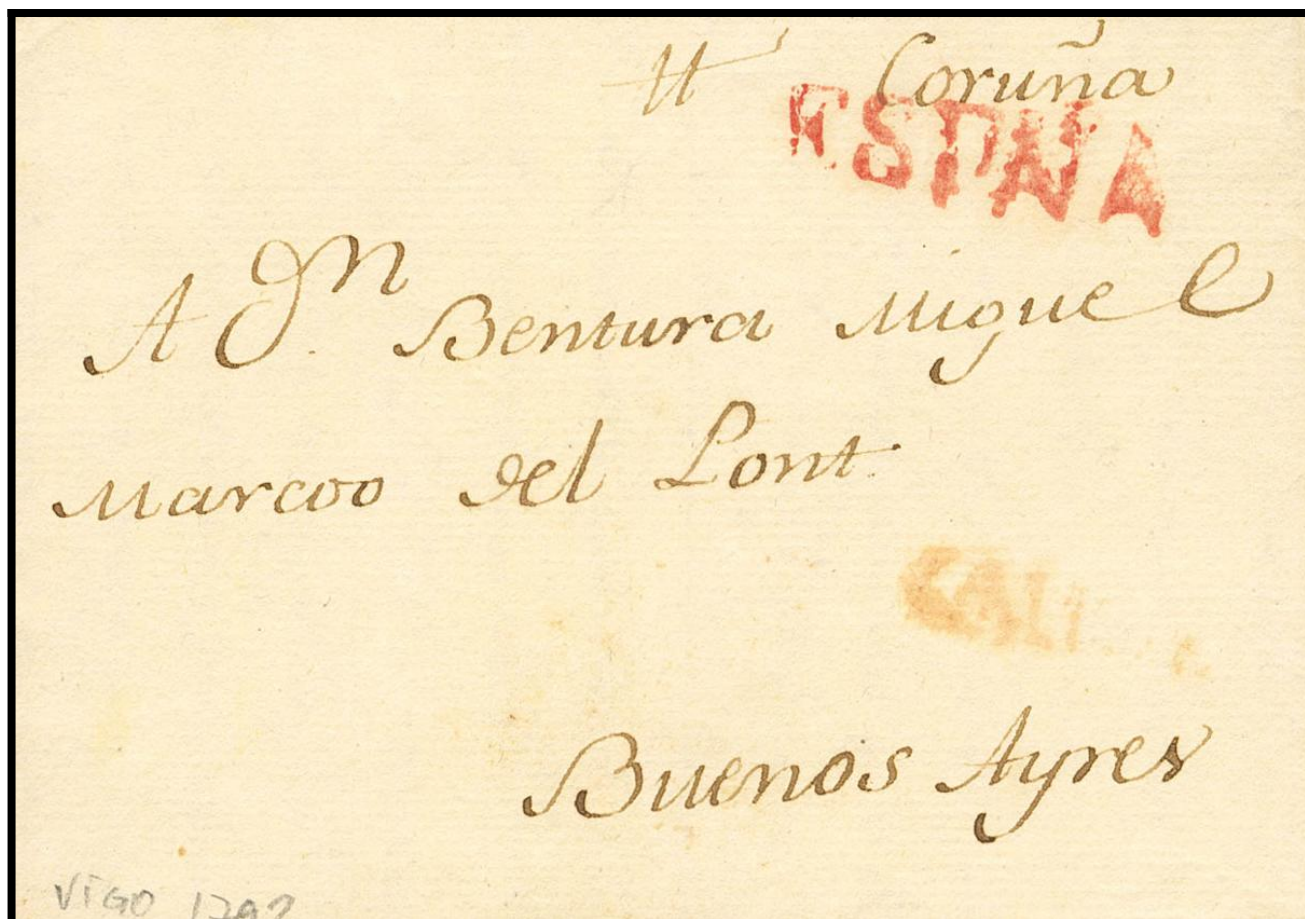 Coruña
ESPÑA
A Dn. Bentura Miguel
Marcoo del Pont
Buenos Ayres
VIGO 1792